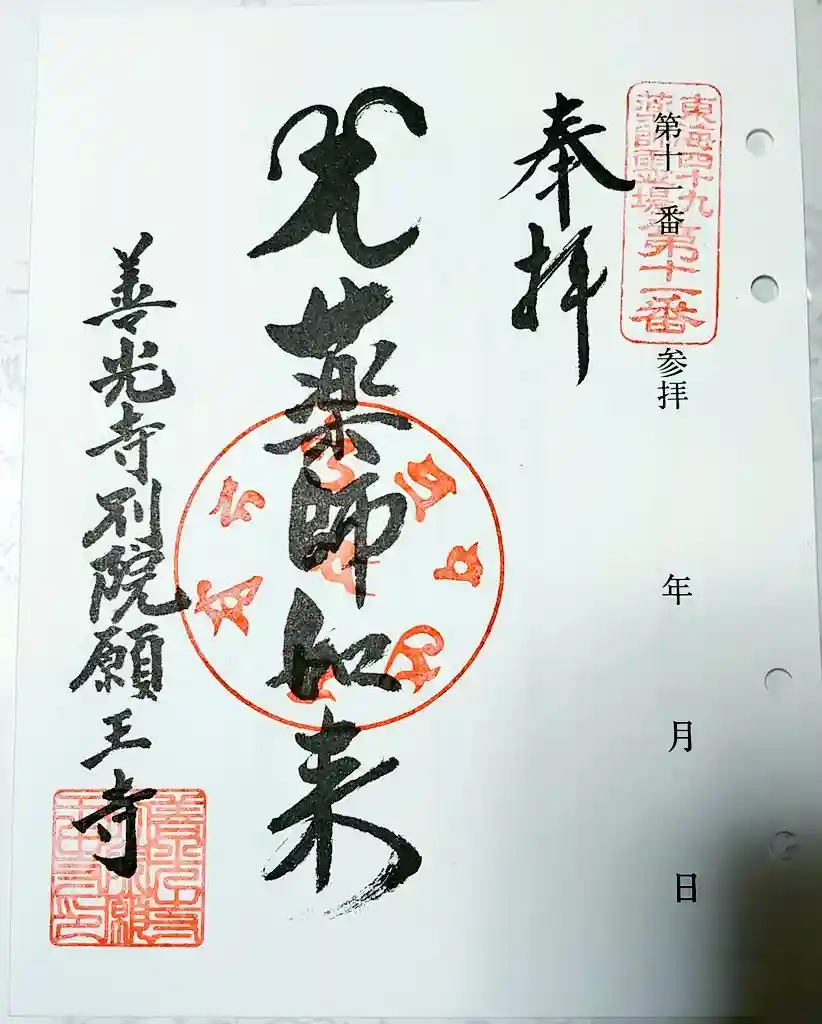 東海四十九
薬師霊場
第十一番
第十一番 参拝 年 月 日
奉拝
薬師如来
善光寺別院願王寺